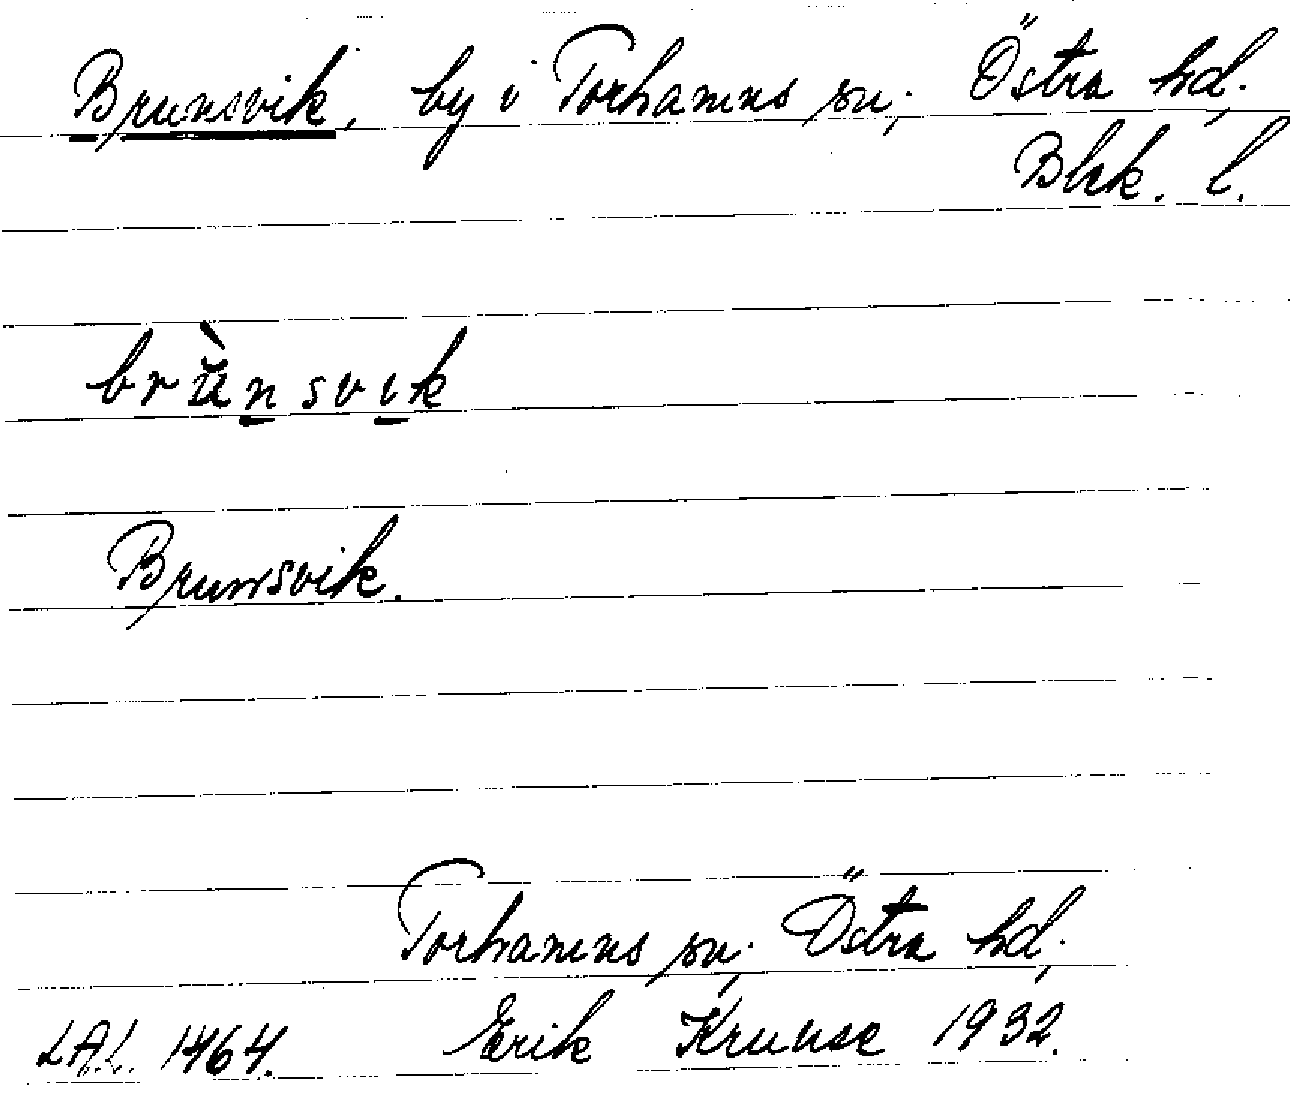 Brunsvik, by i Torhamns sn, Östra hd,
Blek. l.
brùnsvik
Brunsvik.
Torhamns sn, Östra hd,
LAL. 1464. Erik Kruuse 1932.